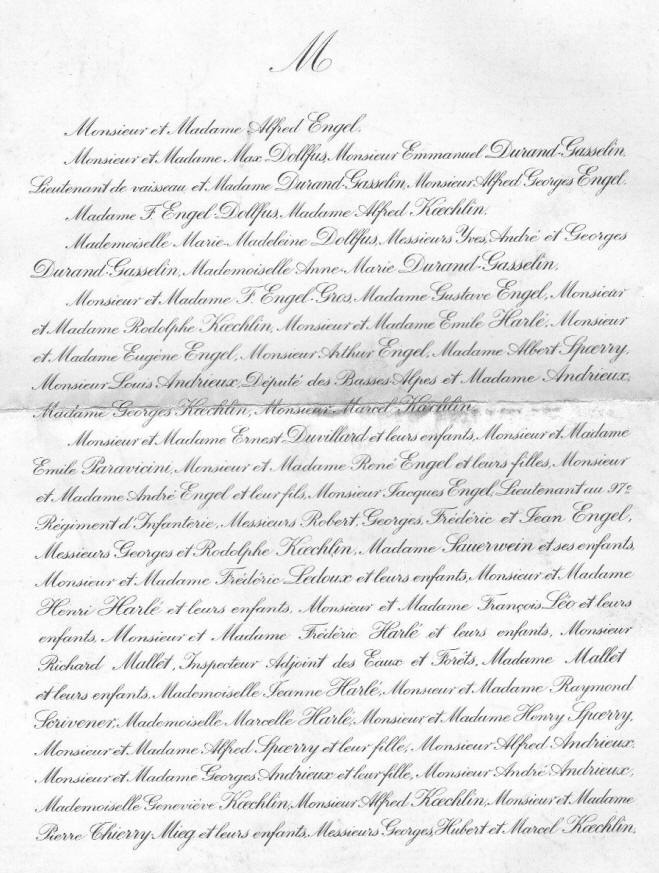 M
Monsieur et Madame Alfred Engel.
Monsieur et Madame Max Dollfus, Monsieur Emmanuel Durand-Gasselin,
Lieutenant de vaisseau, et Madame Durand-Gasselin, Monsieur Alfred Georges Engel.
Madame F. Engel-Dollfus, Madame Alfred Kœchlin.
Mademoiselle Marie-Madeleine Dollfus, Messieurs Yves, André et Georges
Durand-Gasselin, Mademoiselle Anne-Marie Durand-Gasselin.
Monsieur et Madame F. Engel-Gros, Madame Gustave Engel, Monsieur
et Madame Rodolphe Kœchlin, Monsieur et Madame Emile Harlé, Monsieur
et Madame Eugène Engel, Monsieur Arthur Engel, Madame Albert Spœrry,
Monsieur Louis Andrieux, Député des Basses-Alpes et Madame Andrieux,
Madame Georges Kœchlin, Monsieur Marcel Kœchlin.
Monsieur et Madame Ernest Duvillard et leurs enfants, Monsieur et Madame
Emile Paravicini, Monsieur et Madame René Engel et leurs filles, Monsieur
et Madame André Engel et leur fils, Monsieur Jacques Engel, Lieutenant au 97e
Régiment d'Infanterie, Messieurs Robert, Georges, Frédéric et Jean Engel,
Messieurs Georges et Rodolphe Kœchlin, Madame Sauerwein et ses enfants,
Monsieur et Madame Frédéric Ledoux et leurs enfants, Monsieur et Madame
Henri Harlé et leurs enfants, Monsieur et Madame François Léo et leurs
enfants, Monsieur et Madame Frédéric Harlé et leurs enfants, Monsieur
Richard Mallet, Inspecteur Adjoint des Eaux et Forêts, Madame Mallet
et leurs enfants, Mademoiselle Jeanne Harlé, Monsieur et Madame Raymond
Scrivener, Mademoiselle Marcelle Harlé, Monsieur et Madame Henry Spœrry,
Monsieur et Madame Alfred Spœrry et leur fille, Monsieur Alfred Andrieux,
Monsieur et Madame Georges Andrieux et leur fille, Monsieur André Andrieux,
Mademoiselle Geneviève Kœchlin, Monsieur Alfred Kœchlin, Monsieur et Madame
Pierre Thierry-Mieg et leurs enfants, Messieurs Georges, Hubert et Marcel Kœchlin,